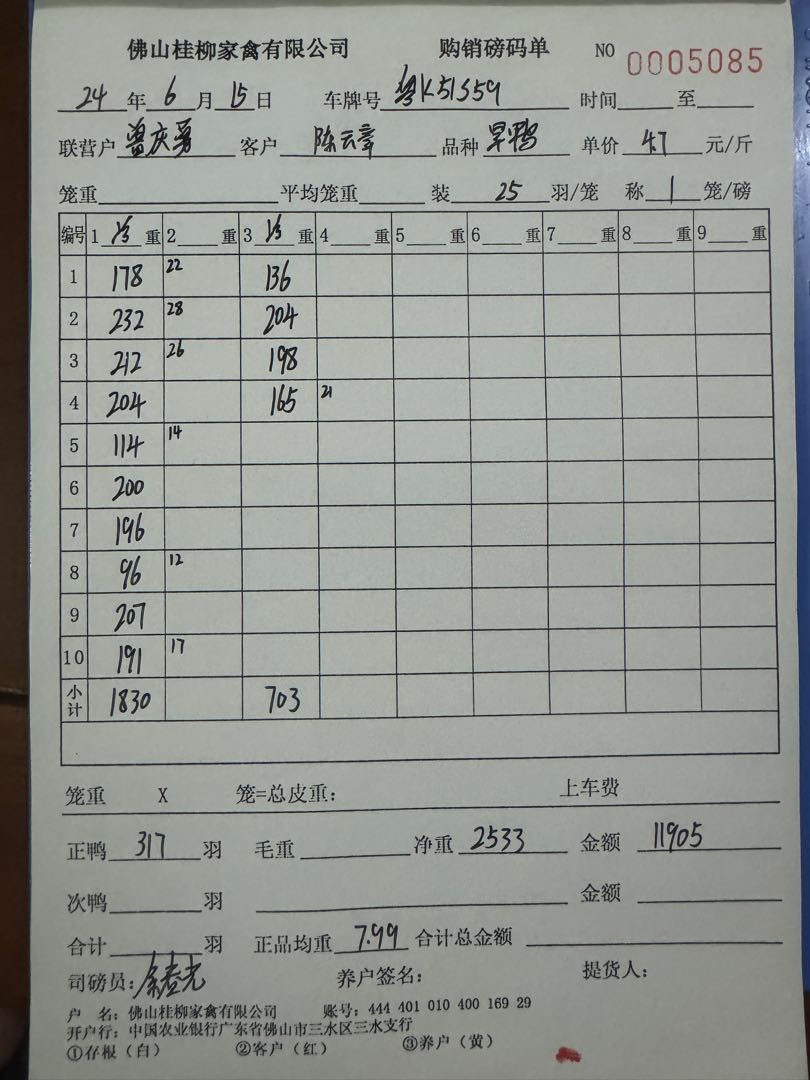 佛山桂柳家禽有限公司 购销磅码单 NO 0005085
24 年 6 月 15 日 车牌号 粤K51S59 时间 至
联营户 曾庆勇 客户 陈云章 品种 旱鸭 单价 4.7 元/斤
笼重 平均笼重 装 25 羽/笼 称 1 笼/磅
编号 1 净 重 2 重 3 净 重 4 重 5 重 6 重 7 重 8 重 9 重
1 178 22 136
2 232 28 204
3 212 26 198
4 204 165 21
5 114 14
6 200
7 196
8 96 12
9 207
10 191 17
小计 1830 703
笼重 X 笼=总皮重: 上车费
正鸭 317 羽 毛重 净重 2533 金额 11905
次鸭 羽 金额
合计 羽 正品均重 7.99 合计总金额
司磅员: 养户签名: 提货人:
户 名: 佛山桂柳家禽有限公司 账号: 444 401 010 400 169 29
开户行: 中国农业银行广东省佛山市三水区三水支行
①存根(白) ②客户(红) ③养户(黄)